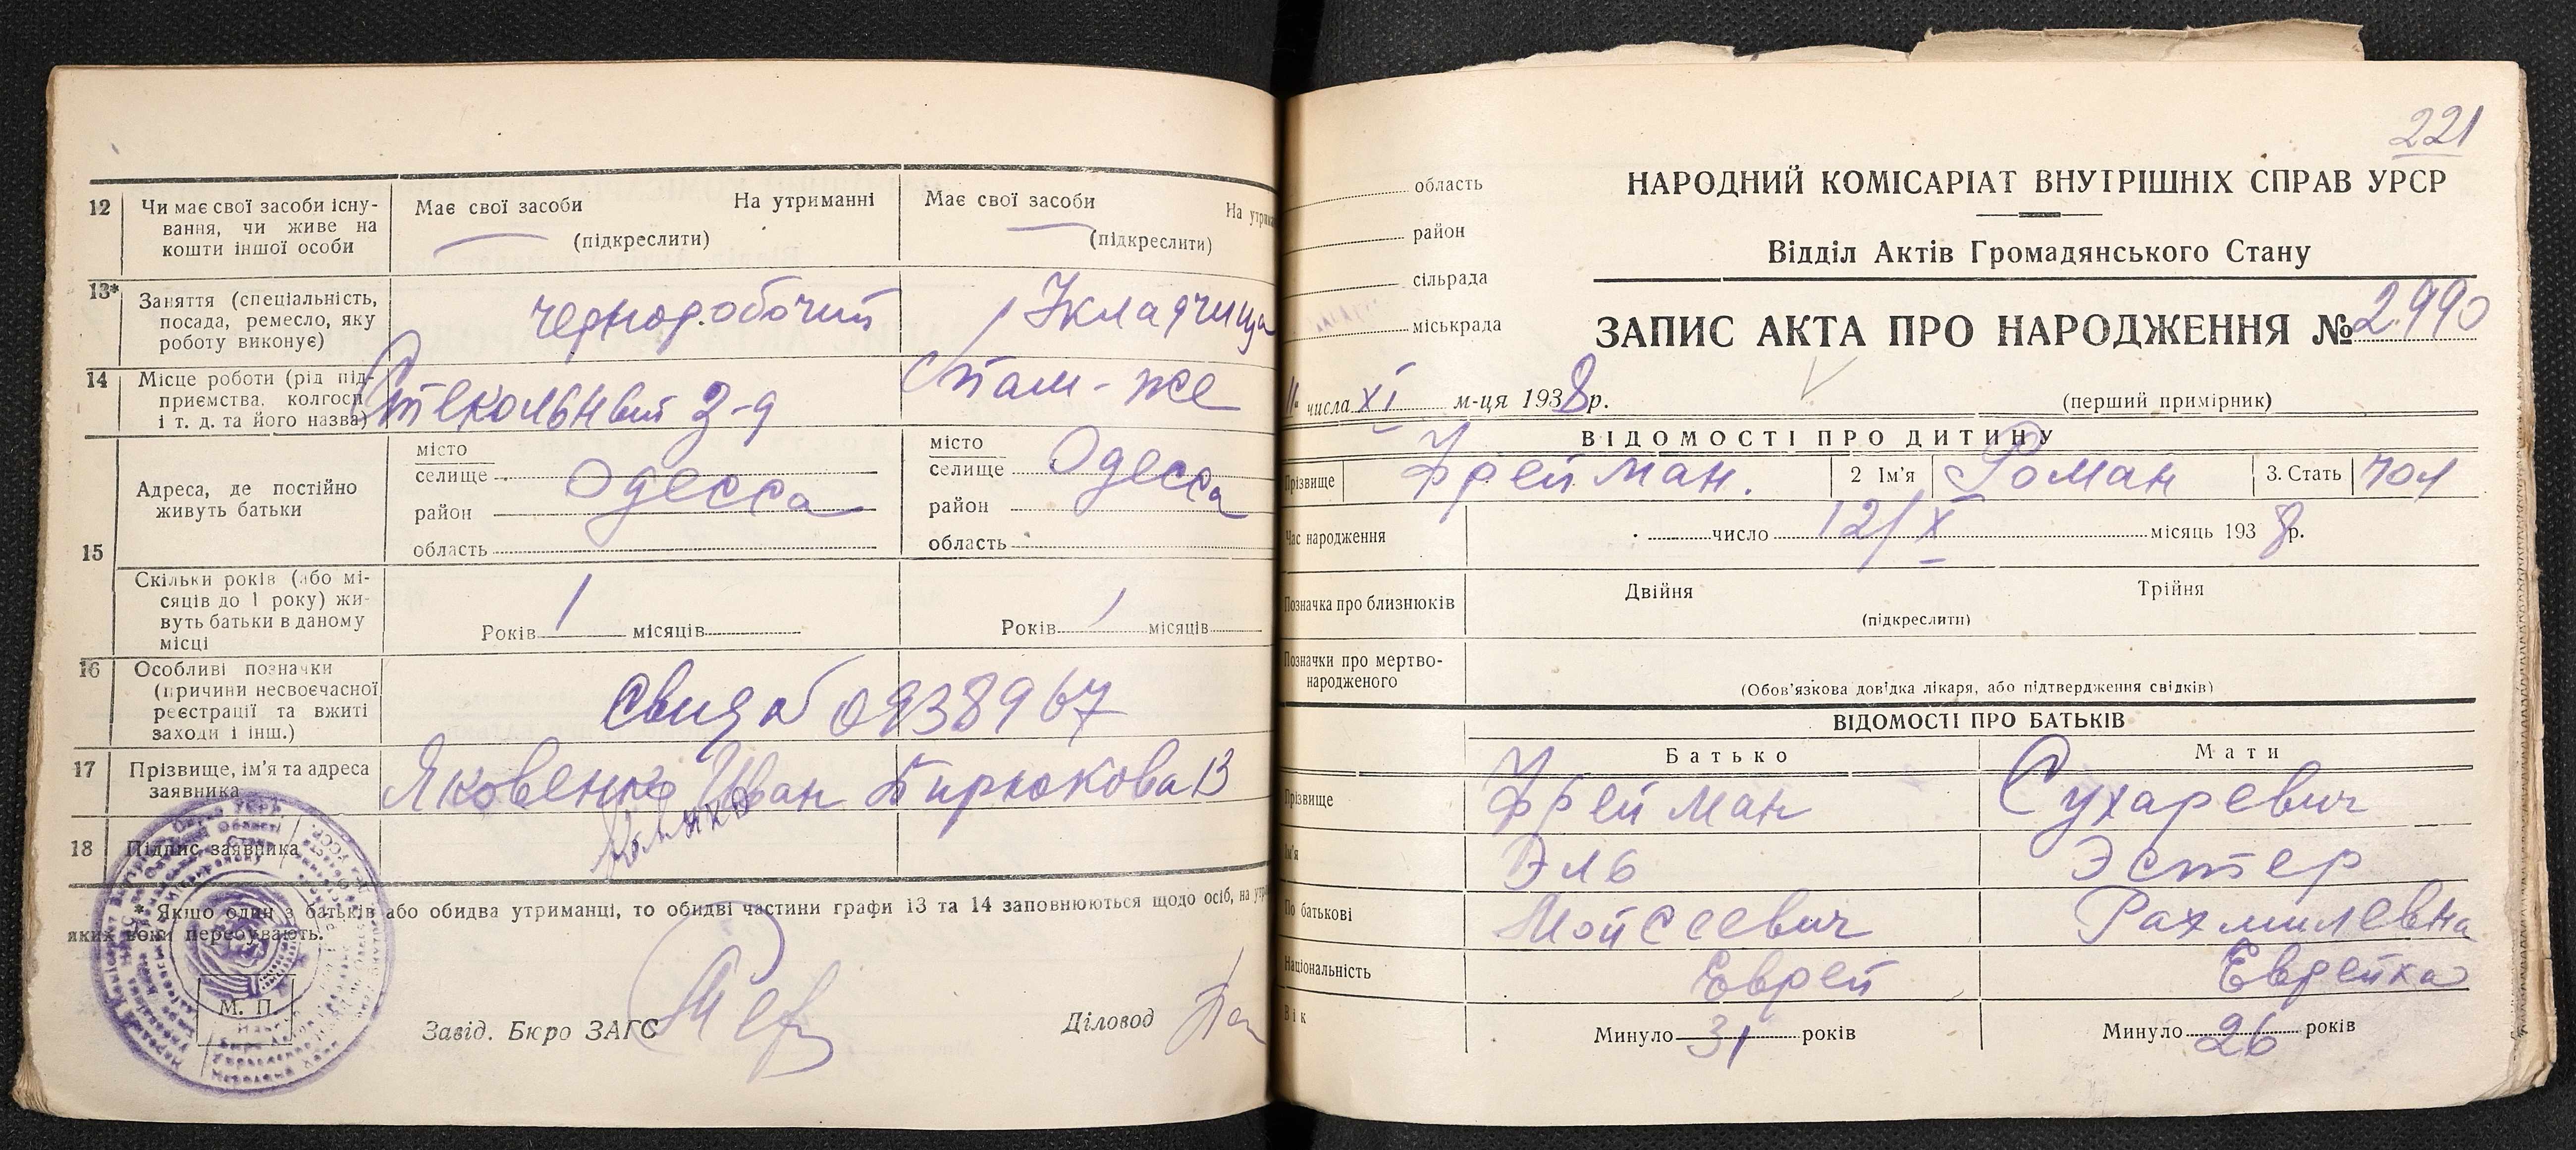 12 Чи має свої засоби існу-
вання, чи живе на
кошти іншої особи
Має свої засоби На утриманні
(підкреслити)
Має свої засоби
(підкреслити)
13* Заняття (спеціальність,
посада, ремесло, яку
роботу виконує)
чернороbочий
Укладчица
14 Місце роботи (рід під-
приємства, колгосп
і т. д. та його назва)
Стекольный З-д
там-же
15 Адреса, де постійно
живуть батьки
місто
селище Одесса
район
область
місто
селище Одесса
район
область
Скільки років (або мі-
сяців до 1 року) жи-
вуть батьки в даному
місці
Років 1 місяців
Років 1 місяців
16 Особливі позначки
(причини несвоєчасної
реєстрації та вжиті
заходи і інш.)
Свид № 0938967
17 Прізвище, ім'я та адреса
заявника
Яковенко Иван Бирюкова 13
18 Підпис заявника
* Якщо один з батьків або обидва утриманці, то обидві частини графи 13 та 14 заповнюються щодо осіб, на
яких вони перебувають.
М. П.
Завід. Бюро ЗАГС
Діловод
221
область
район
сільрада
міськрада
НАРОДНИЙ КОМІСАРІАТ ВНУТРІШНІХ СПРАВ УРСР
Відділ Актів Громадянського Стану
ЗАПИС АКТА ПРО НАРОДЖЕННЯ № 2990
11 числа XI м-ця 1938 р.
(перший примірник)
ВІДОМОСТІ ПРО ДИТИНУ
Прізвище Фрейман. 2 Ім'я Роман 3. Стать чол
Час народження число 12/X місяць 1938 р.
Позначка про близнюків Двійня Трійня
(підкреслити)
Позначки про мертво-
народженого
(Обов'язкова довідка лікаря, або підтвердження свідків)
ВІДОМОСТІ ПРО БАТЬКІВ
Батько Мати
Прізвище Фрейман Сухаревич
Ім'я Эль Эстер
По батькові Мойсеевич Рахмилевна
Національність Еврей Еврейка
Вік Минуло 31 років Минуло 26 років